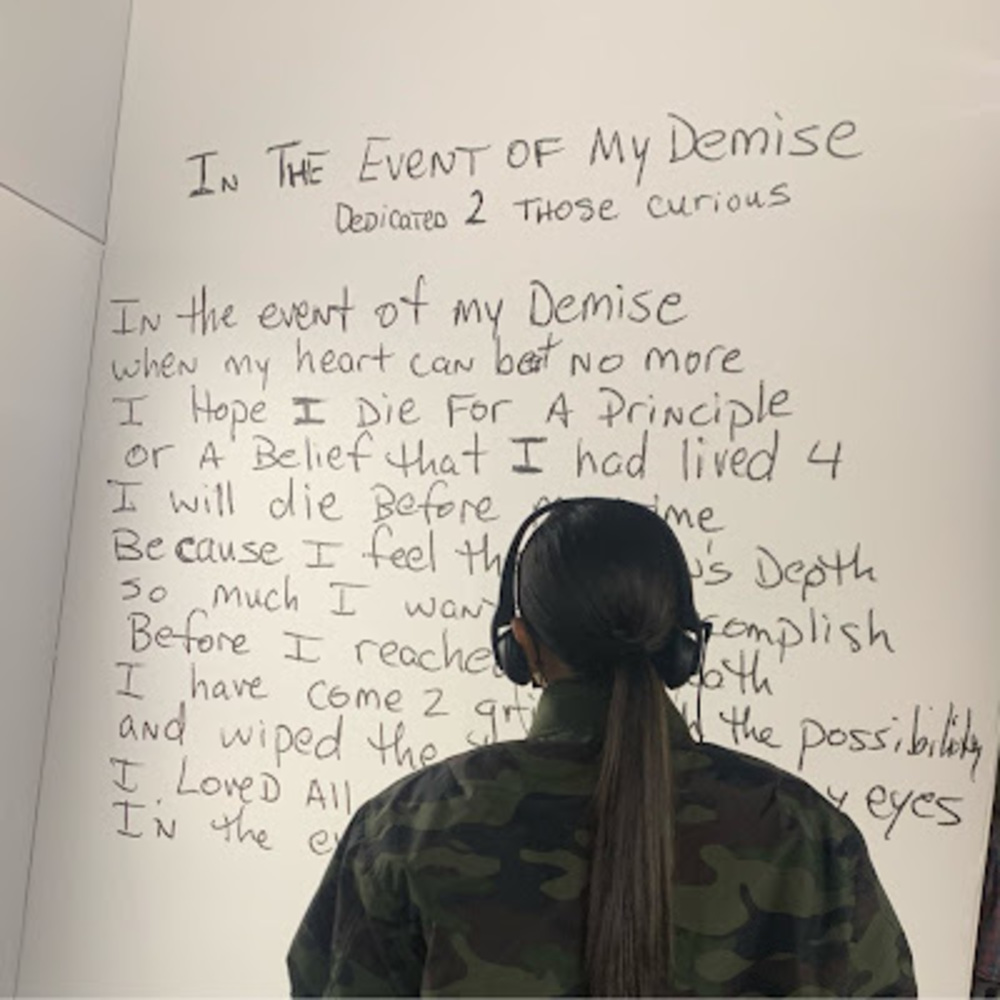 In The Event of My Demise
Dedicated 2 Those curious
In the event of my Demise
when my heart can beat no more
I Hope I Die For A Principle
or A Belief that I had lived 4
I will die Before
Because I feel Depth
so much I
Before I
I have come 2
and wiped the the possibility
I Loved All eyes
In the